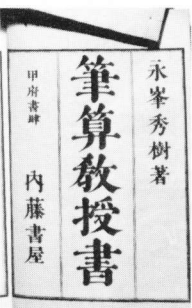 永峯秀樹著
筆算教授書
甲府書肆
内藤書屋